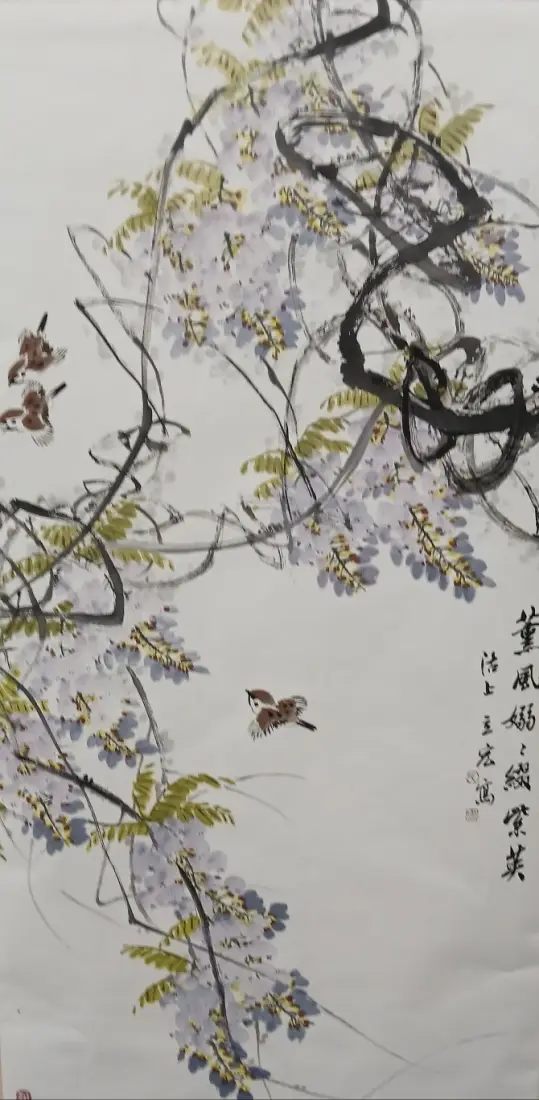 薰風嫋〻綴紫英
沽上立宏寫